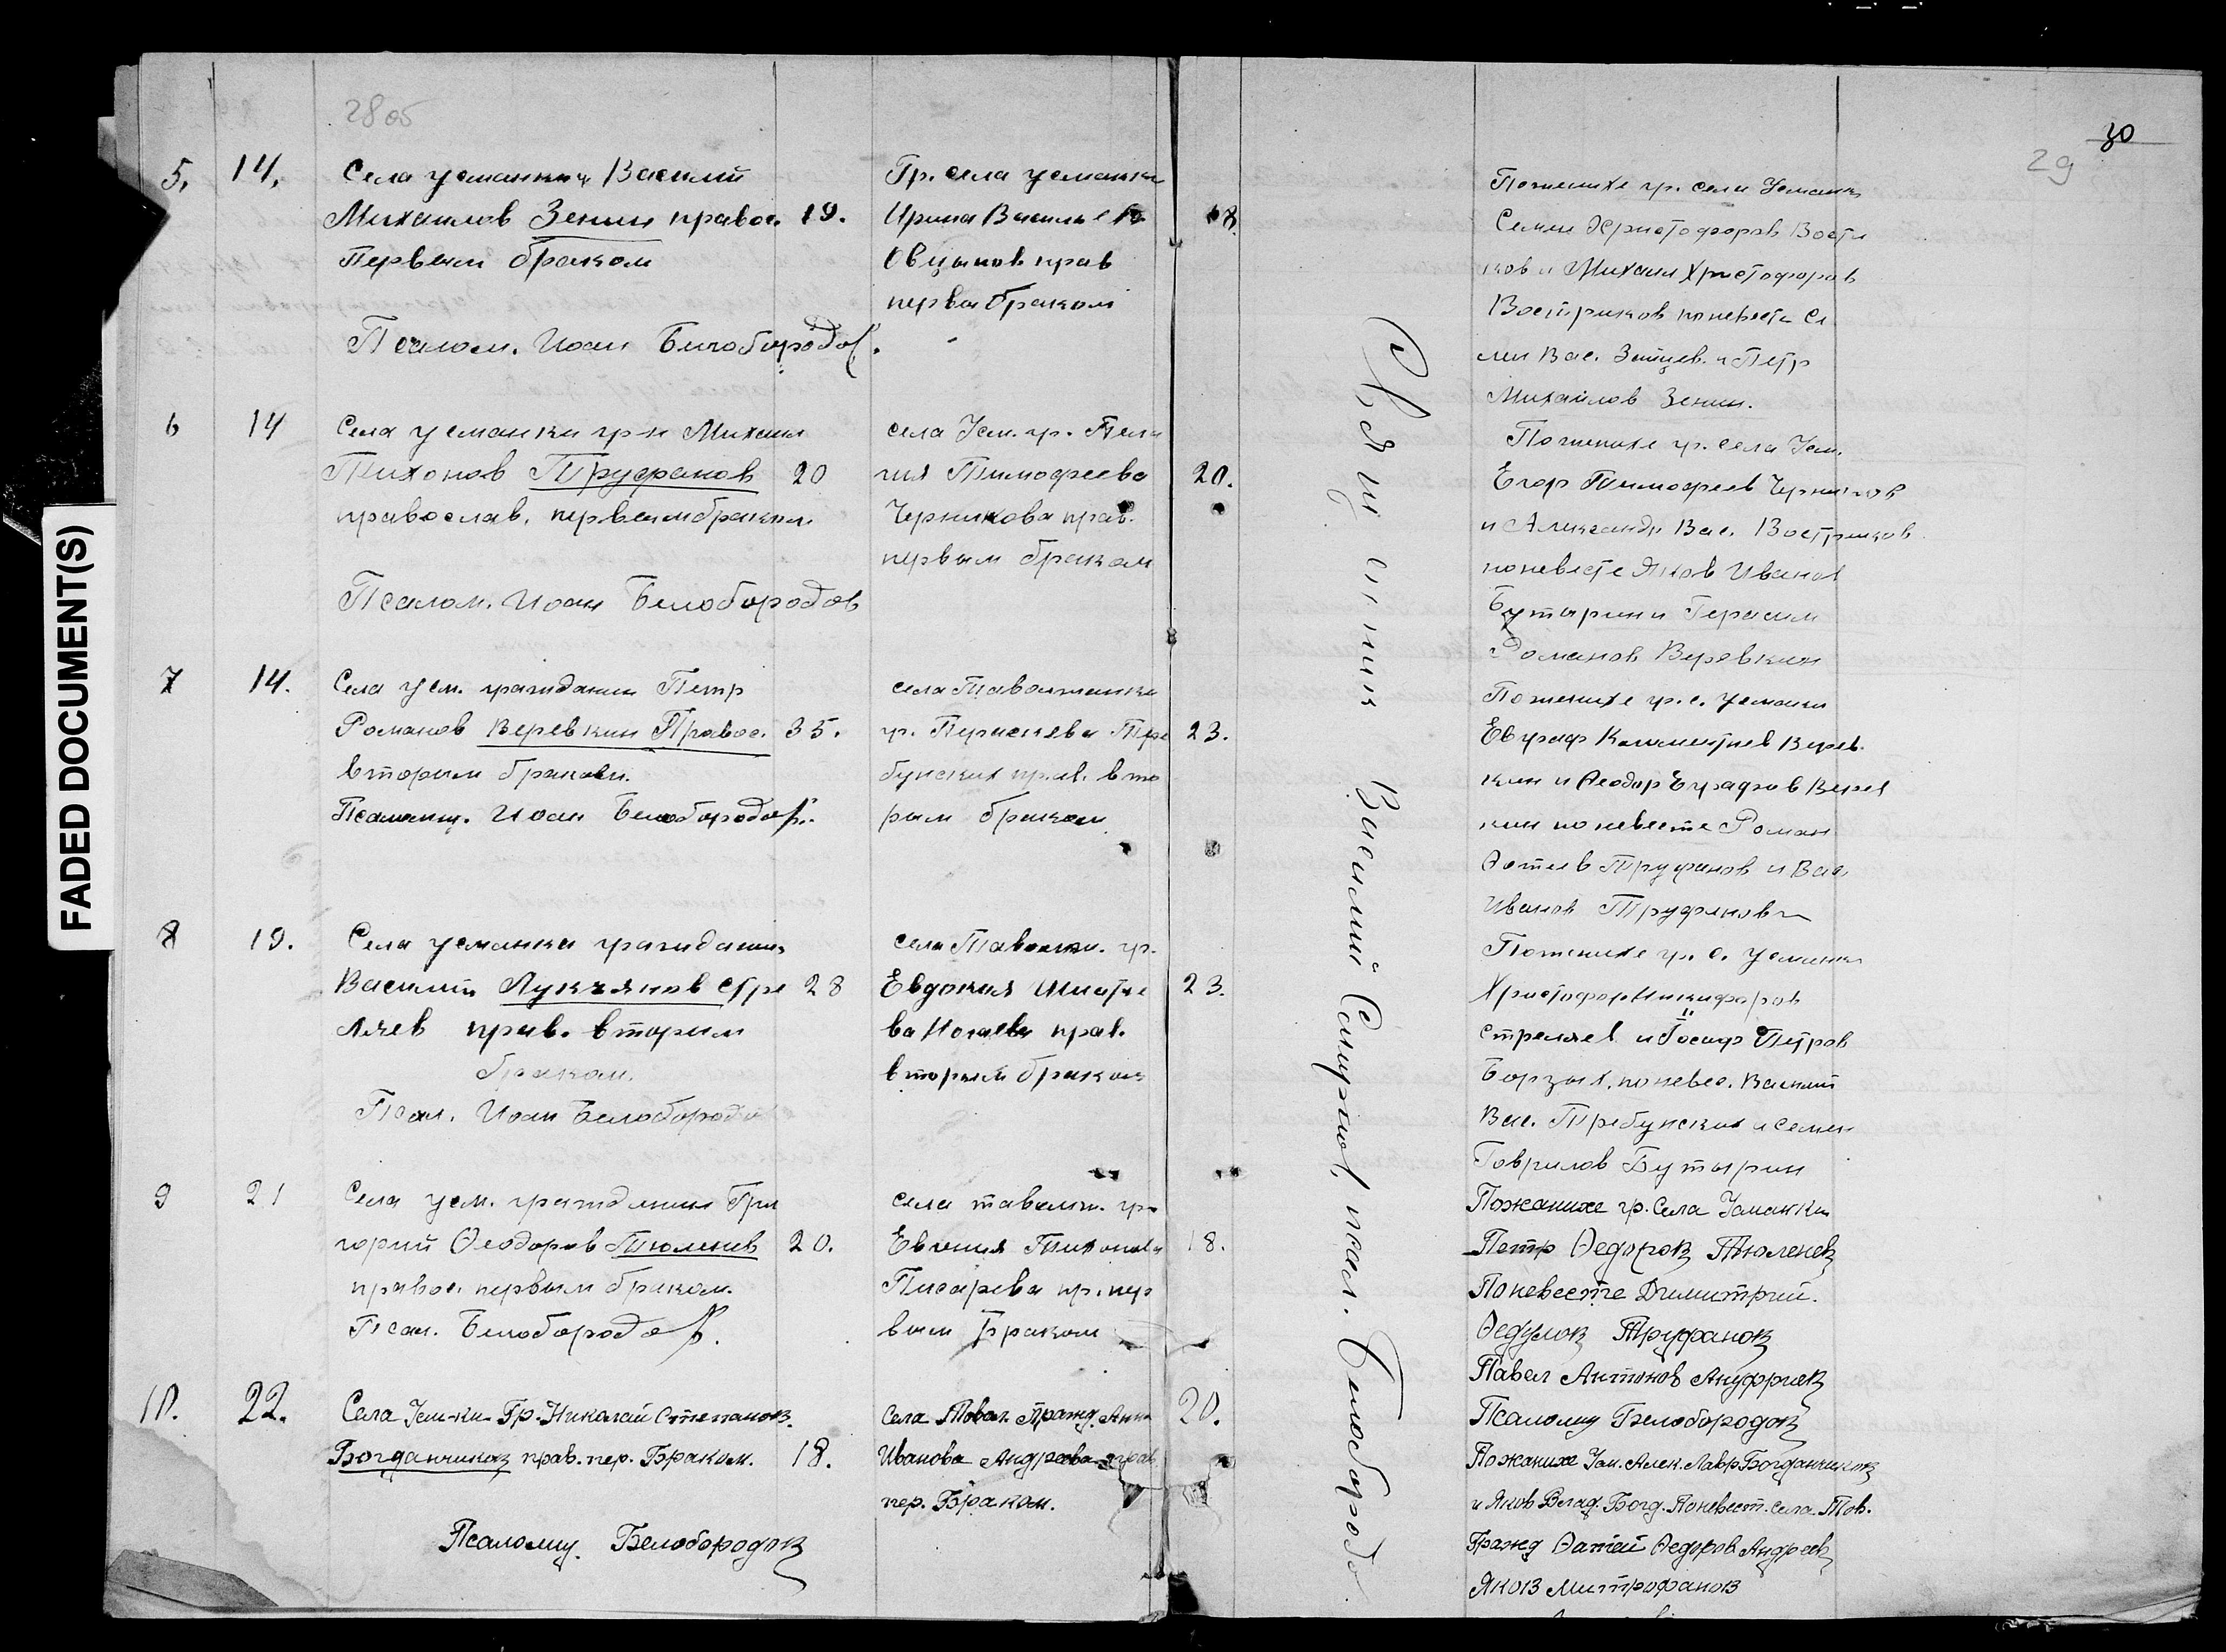 28об
30
29
FADED DOCUMENT(S)
5. 14.
Села усманки Василий
Михаилов Зенин правос. 19.
Первым браком
Псалом. Иоан Белобородов.
Гр. села усманки
Ирина Василье
прав
первы браком
18.
По женихе гр. села Усманки
Семен Христофоров Востри
ков и Михаил Христофоров
Востриков по невесте Се
мен Вас. Зайцев. и Петр
Михайлов Зенин.
6 14
Села усманки гр-н Михаил
Тихонов Труфанов 20
православ. первым браком
Псалом. Иоан Белобородов
села Усм. гр. Пела
гия Тимофеева
Черникова прав.
первым браком
20.
По женихе гр. села Усм.
Егор Тимофеев Черников
и Александр Вас. Востриков
по невесте Яков Иванов
Бутырин и Герасим
Романов Веревкин
7 14.
Села усм. гражданин Петр
Романов Веревкин Правос. 35.
вторым браком.
Псаломщ. Иоан Белобородов.
села Таволжанки
гр. Тре
бунских прав. вто
рым браком
23.
По женихе гр. с. усманки
Евграф Верев
кин и Феодор Еграфов Верев
кин по невесте Роман
Труфанов и Вас.
Иванов Труфанов
8 19.
Села усманки гражданин
Василий Лукъянов Стре 28
ляев прав. вторым
браком.
Псал. Иоан Белобородов
села Таволжан. гр.
Евдокия Игнатье
ва прав.
вторым браком
23.
По женихе гр. с. усманки
Христофор Никифоров
Стреляев и Иосиф Петров
Борзых, по невес. Василий
Вас. Требунских и Семен
Гаврилов Бутырин
9 21
Села усм. гражданин Гри
горий Феодоров Тюленев 20.
правос. первым браком.
Псал. Белобородов.
села таволж. гр.
Евгения Тихонова
Писарева пр. пер
вым браком
18.
По жанихе гр. Села Усманки
Петр Федоров Тюленев
По невесте Димитрий.
Труфанов
Павел Антонов Ануфриев
Псаломщ Белобородов
10. 22.
Села Усм-ки Гр. Николай Степанов.
Богданчиков прав. пер. Браком. 18.
Псаломщ. Белобородов
Села Товол. Гражд. Анна
Иванова Андреева прав
пер. Браком.
20.
По жанихе Усм. Алек. Лавр. Богданчиков
и Яков Влад. Богд. По невест. села. Тов.
Гражд Федоров Андреев
Яков Митрофанов
Священник Василий Смирнов, псал. Белобородов